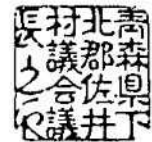 青森県下
北郡佐井
村議会議
長之印